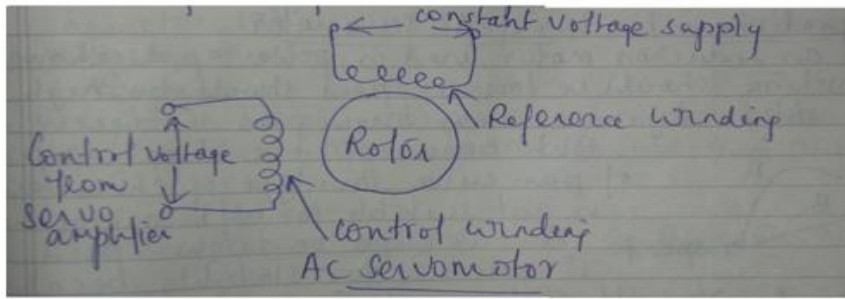 constant voltage supply
Reference winding
Rotor
Control voltage
from
servo
amplifier
control winding
AC Servomotor